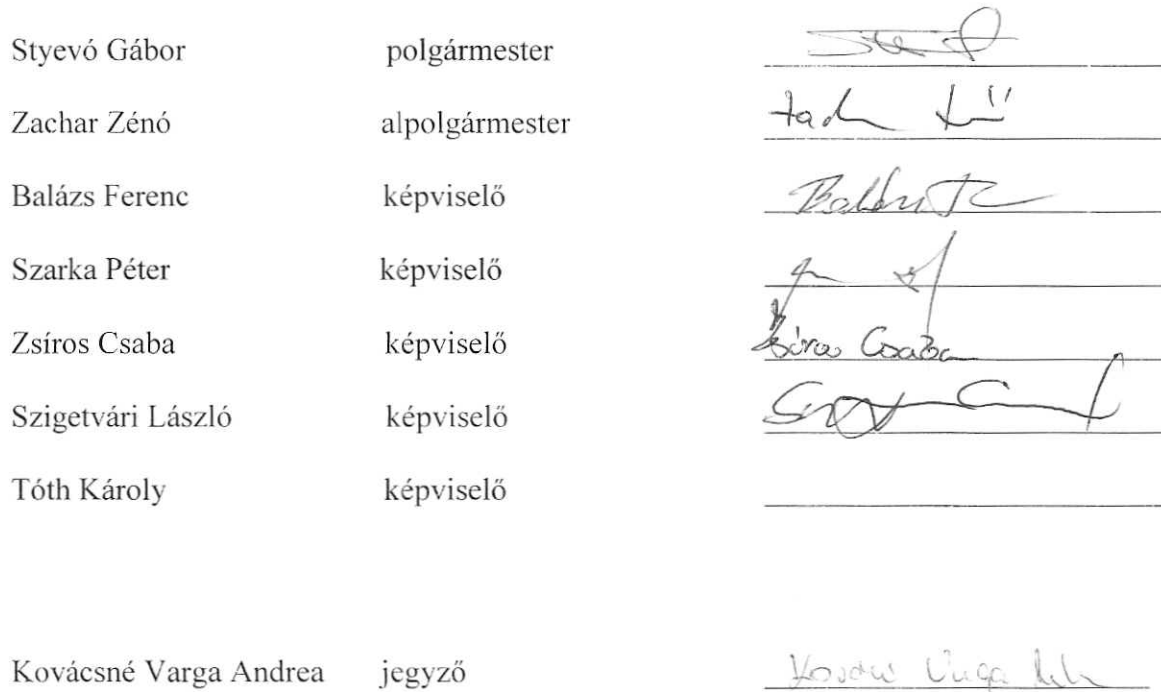 Styevó Gábor polgármester
Zachar Zénó alpolgármester
Balázs Ferenc képviselő
Szarka Péter képviselő
Zsíros Csaba képviselő Zsíros Csaba
Szigetvári László képviselő
Tóth Károly képviselő
Kovácsné Varga Andrea jegyző